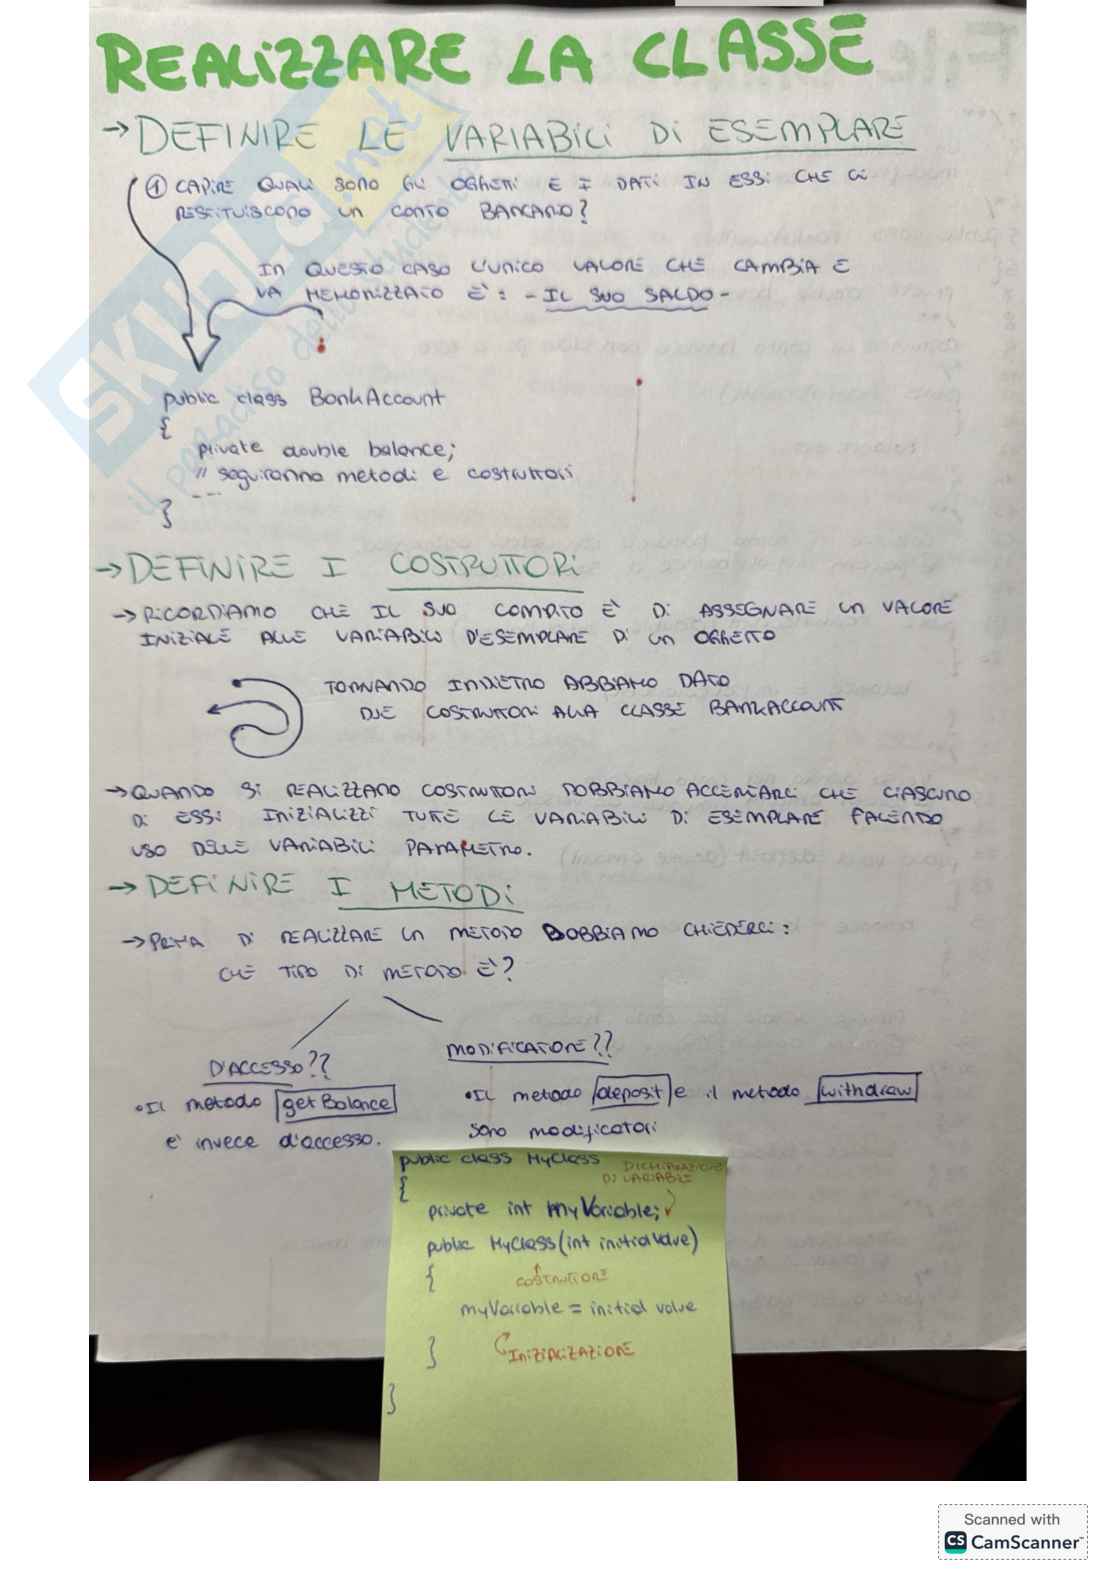 REALIZZARE LA CLASSE
→ DEFINIRE LE VARIABILI DI ESEMPLARE
① CAPIRE QUALI SONO GLI OGGETTI E I DATI IN ESSI CHE CI
RESTITUISCONO UN CONTO BANCARIO?
IN QUESTO CASO L'UNICO VALORE CHE CAMBIA E
VA MEMORIZZATO È: - IL SUO SALDO -
public class BankAccount
{
private double balance;
// seguiranno metodi e costruttori
...
}
→ DEFINIRE I COSTRUTTORI
→ RICORDIAMO CHE IL SUO COMPITO È DI ASSEGNARE UN VALORE
INIZIALE ALLE VARIABILI D'ESEMPLARE DI UN OGGETTO
TORNANDO INDIETRO ABBIAMO DATO
DUE COSTRUTTORI ALLA CLASSE BANKACCOUNT
→ QUANDO SI REALIZZANO COSTRUTTORI DOBBIAMO ACCERTARCI CHE CIASCUNO
DI ESSI INIZIALIZZI TUTTE LE VARIABILI DI ESEMPLARE FACENDO
USO DELLE VARIABILI PARAMETRO.
→ DEFINIRE I METODI
→ PRIMA DI REALIZZARE UN METODO DOBBIAMO CHIEDERCI:
CHE TIPO DI METODO È?
D'ACCESSO??
MODIFICATORE??
• Il metodo getBalance
è invece d'accesso.
• Il metodo deposit e il metodo withdraw
sono modificatori
public class MyClass
DICHIARAZIONE
DI VARIABILE
{
private int myVariable;
public MyClass(int initialValue)
{
COSTRUTTORE
myVariable = initial value
}
INIZIALIZZAZIONE
}
SKUOLA.net
il paradiso dello studente
Scanned with
CS CamScanner